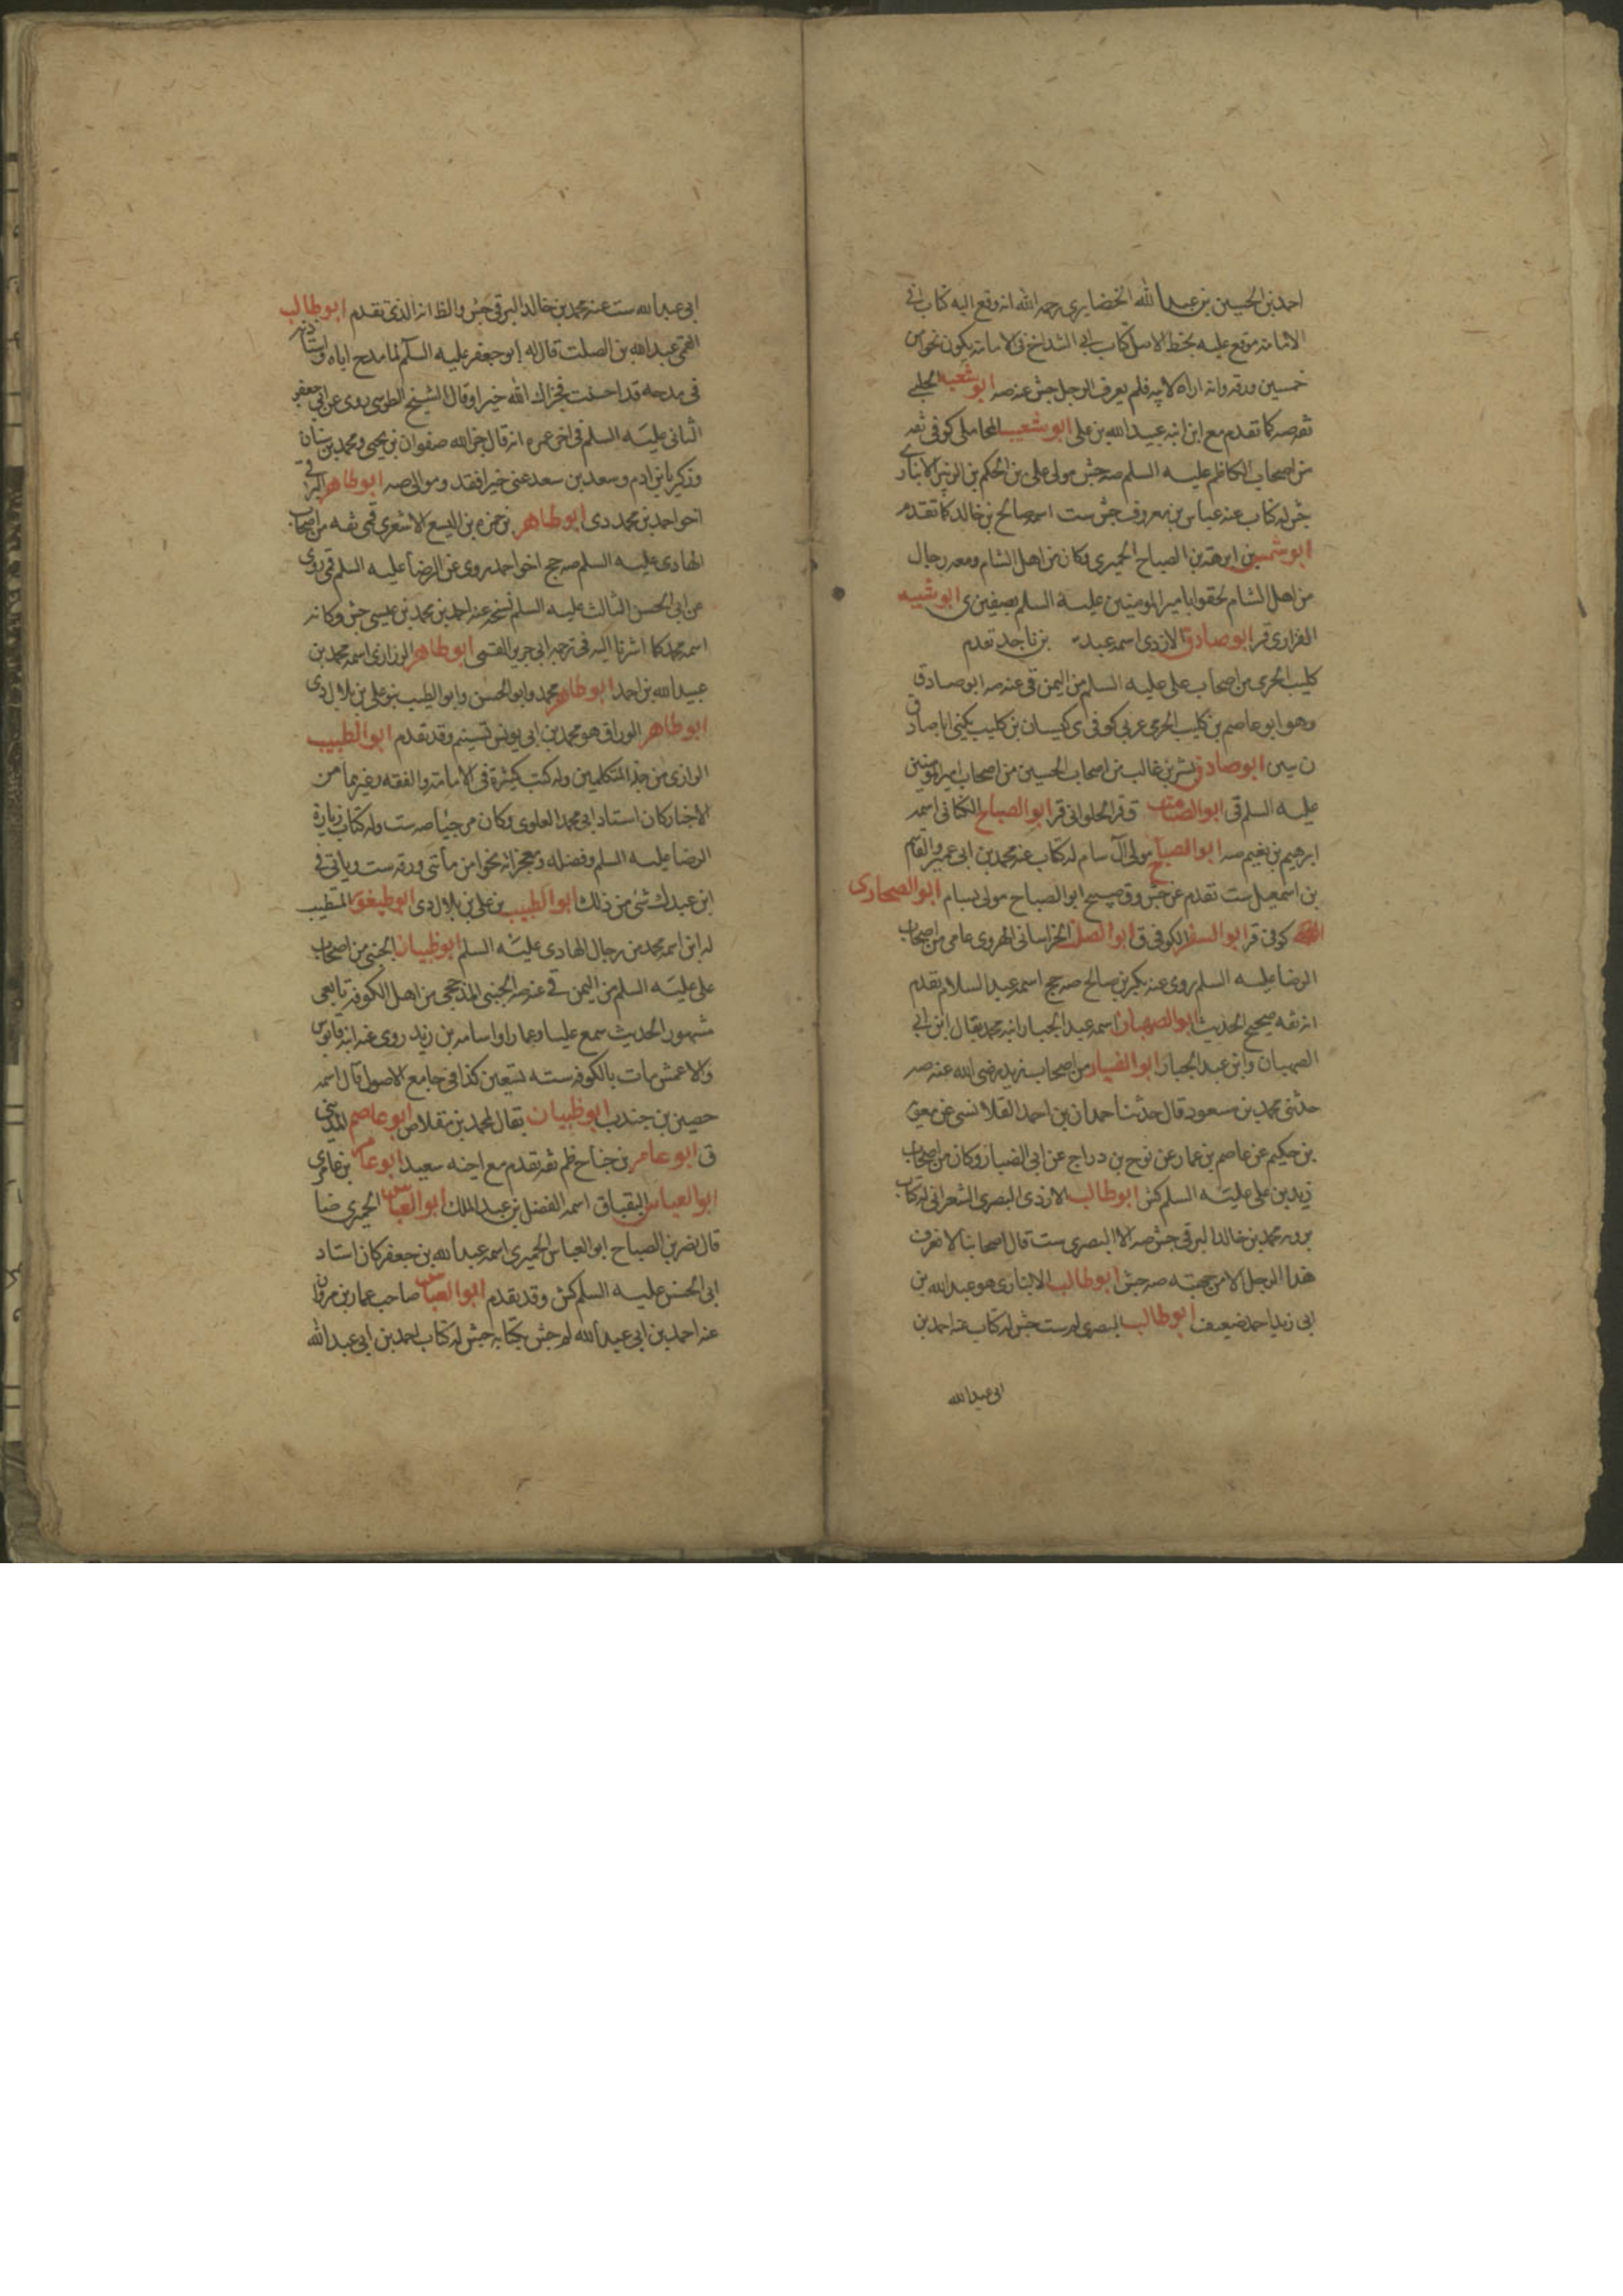 احمد بن الحسين بن عبيد الله الغضايري رحمه الله انه وقع اليه كتاب في
الامامة موقع عليه بخط الاصل كتاب ابي الشداخ في الامامة يكون نحوا من
خمسين ورقة وانه اراه لابيه فلم يعرف الرجل جش عنه صه ابو شعيب الحلبي
ثقه صه كما تقدم مع ابن ابنه عبيد الله بن علي ابو شعيب المحاملي كوفي ثقه
من اصحاب الكاظم عليه السلم صه جش مولى علي بن الحكم بن الزبير الانباري
جش له كتاب عنه عباس بن معروف جش ست اسمه صالح بن خالد كما تقدم
ابو شمر بن ابرهة بن الصباح الحميري وكان من اهل الشام ومعه رجال
من اهل الشام لحقوا بامير المومنين عليه السلم بصفين ي ابو شيبه
الفزاري قر ابو صادق الازدي اسمه عبد بن ناجد تقدم
كليب الجرمي من اصحاب علي عليه السلم من اليمن قي عنه صه ابو صادق
وهو ابو عاصم بن كليب الجرمي عربي كوفي ي كيسان بن كليب يكنى ابا صادق
ن سين ابو صادق بشر بن غالب من اصحاب الحسين من اصحاب امير المومنين
عليه السلم قي ابو الصامت ق قر الحلواني قر ابو الصباح الكناني اسمه
ابرهيم بن نعيم صه ابو الصباح مولى آل سام له كتاب عنه محمد بن ابي عمير والقاسم
بن اسمعيل ست تقدم عن جش وق صبيح ابو الصباح مولى بسام ابو الصحاري
كوفي قر ابو السفر الكوفي ق ابو الصلت الخراساني الهروي عامي من اصحاب
الرضا عليه السلم روى عنه بكر بن صالح صه جج اسمه عبد السلام تقدم
انه ثقه صحيح الحديث ابو الصهبان اسمه عبد الجبار ابنه محمد يقال ابن ابي
الصهبان وابن عبد الجبار ابو الضبار من اصحاب زيد رضي الله عنه صه
حدثني محمد بن مسعود قال حدثنا حمدان بن احمد القلانسي عن معوية
بن حكيم عن عاصم بن عمار عن نوح بن دراج عن ابي الضبار وكان من اصحاب
زيد بن علي عليه السلم كش ابو طالب الازدي البصري الشعراني له كتاب
يرويه محمد بن خالد البرقي جش صه الا البصري ست قال اصحابنا لا نعرف
هذا الرجل الا من جهته صه جش ابو طالب الانباري هو عبد الله بن
ابي زيد احمد ضعيف ابو طالب البصري له ست جش له كتاب عنه احمد بن
ابي عبد الله
ابي عبد الله ست عنه محمد بن خالد البرقي جش والظ انه الذي تقدم ابو طالب
القمي عبد الله بن الصلت قال له ابو جعفر عليه السلم لما مدح اباه واستأذنه
في مدحه قد احسنت فجزاك الله خيرا وقال الشيخ الطوسي روى عن ابي جعفر
الثاني عليه السلم في اخر عمره انه قال جزى الله صفوان بن يحيى ومحمد بن سنان
وزكريا بن ادم وسعد بن سعد عني خيرا فقد وفوا لي صه ابو طاهر البرقي
اخو احمد بن محمد دي ابو طاهر بن حمزه بن اليسع الاشعري قمي ثقه من اصحاب
الهادي عليه السلم صه جج اخو احمد روى عن الرضا عليه السلم قمي روى
عن ابي الحسن الثالث عليه السلم نسخه عنه احمد بن محمد بن عيسى جش وكانه
اسمه محمد كما اشرنا اليه في ترجمة ابي جرير القمي ابو طاهر الزراري اسمه محمد بن
عبيد الله بن احمد ابو طاهر محمد وابو الحسن وابو الطيب بنو علي بن بلال دي
ابو طاهر الوراق هو محمد بن ابي يونس تسنيم وقد تقدم ابو الطيب
الرازي من جلة المتكلمين وله كتب كثيرة في الامامة والفقه وغيرهما من
الاخبار كان استاد ابي محمد العلوي وكان مرجئا صه ست وله كتاب زيارة
الرضا عليه السلم وفضله ومعجزاته نحوا من مأتي ورقه ست وياتي في
ابن عبدك شئ من ذلك ابو الطيب بن علي بن بلال دي ابو طيغور المتطبب
له ابن اسمه محمد من رجال الهادي عليه السلم ابو ظبيان الجنبي من اصحاب
علي عليه السلم من اليمن قي عنه صه الجنبي المذحجي من اهل الكوفة تابعي
مشهور الحديث سمع عليا وعمارا واسامه بن زيد روى عنه ابنه قابوس
والاعمش مات بالكوفة سنه تسعين كذا في جامع الاصول قال اسمه
حصين بن جندب ابو ظبيان يقال لمحمد بن مقلاص ابو عاصم المديني
ق ابو عامر بن جناح ظم ثقه تقدم مع اخيه سعيد ابو عامر بن عامر ي
ابو العباس البقباق اسمه الفضل بن عبد الملك ابو العباس الحميري ضا
قال نصر بن الصباح ابو العباس الحميري اسمه عبد الله بن جعفر كان استاد
ابي الحسن عليه السلم كش وقد تقدم ابو العباس صاحب عمار بن مروان
عنه احمد بن ابي عبد الله له جش بكتابه جش له كتاب احمد بن ابي عبد الله